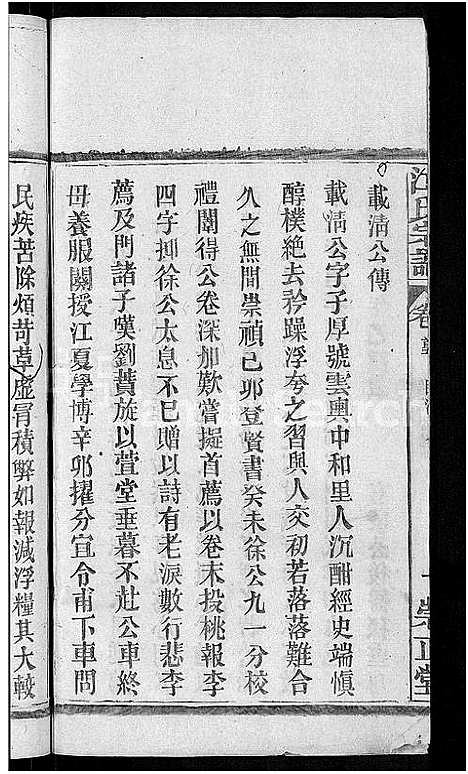 江氏宗譜
卷
崇正堂
載淸公傳
載淸公字子厚號雲輿中和里人沉酣經史端愼
醇樸絶去矜躁浮夸之習與人交初若落落難合
久之無間崇禎己卯登賢書癸未徐公九一分校
禮闈得公卷深加歎嘗擬首薦以卷末投桃報李
四字抑徐公太息不已贈以詩有老淚數行悲李
薦及門諸子嘆劉蕡旋以萱堂垂暮不赴公車終
母養服闋授江夏學博辛卯擢分宜令甫下車問
民疾苦除煩苛革虛冐積弊如報減浮糧其大較